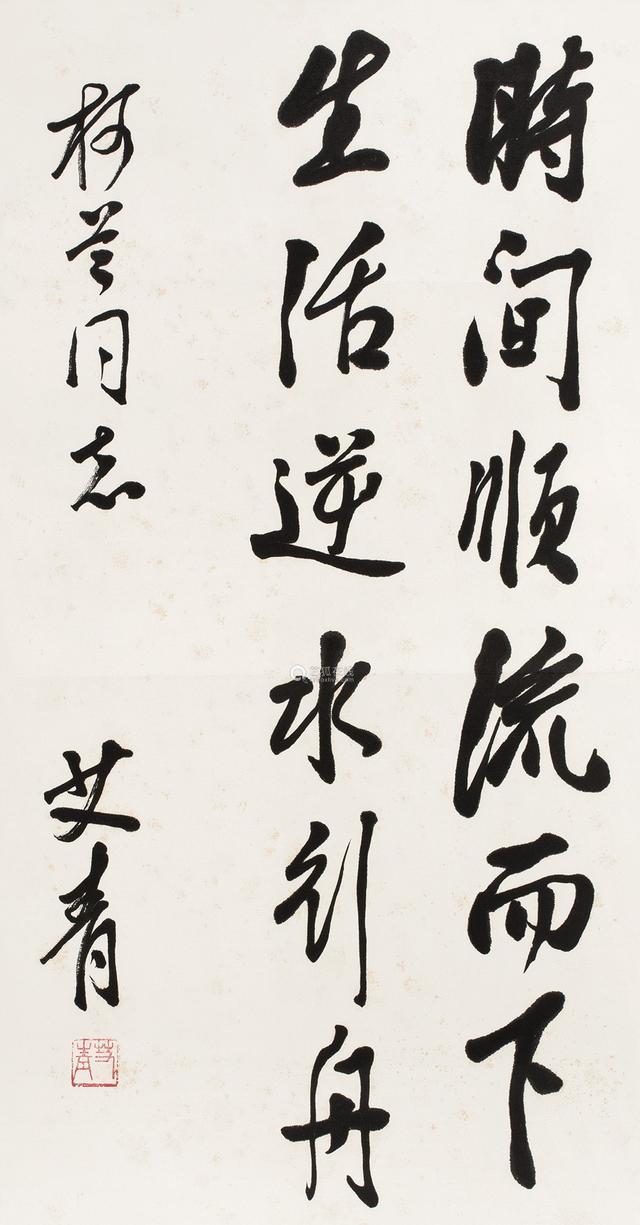 時间順流而下
生活逆水行舟
柯兰同志
艾青
艾青